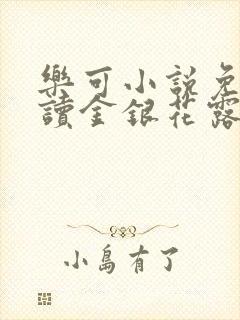 樂可小説免
讀金銀花露
小島有了